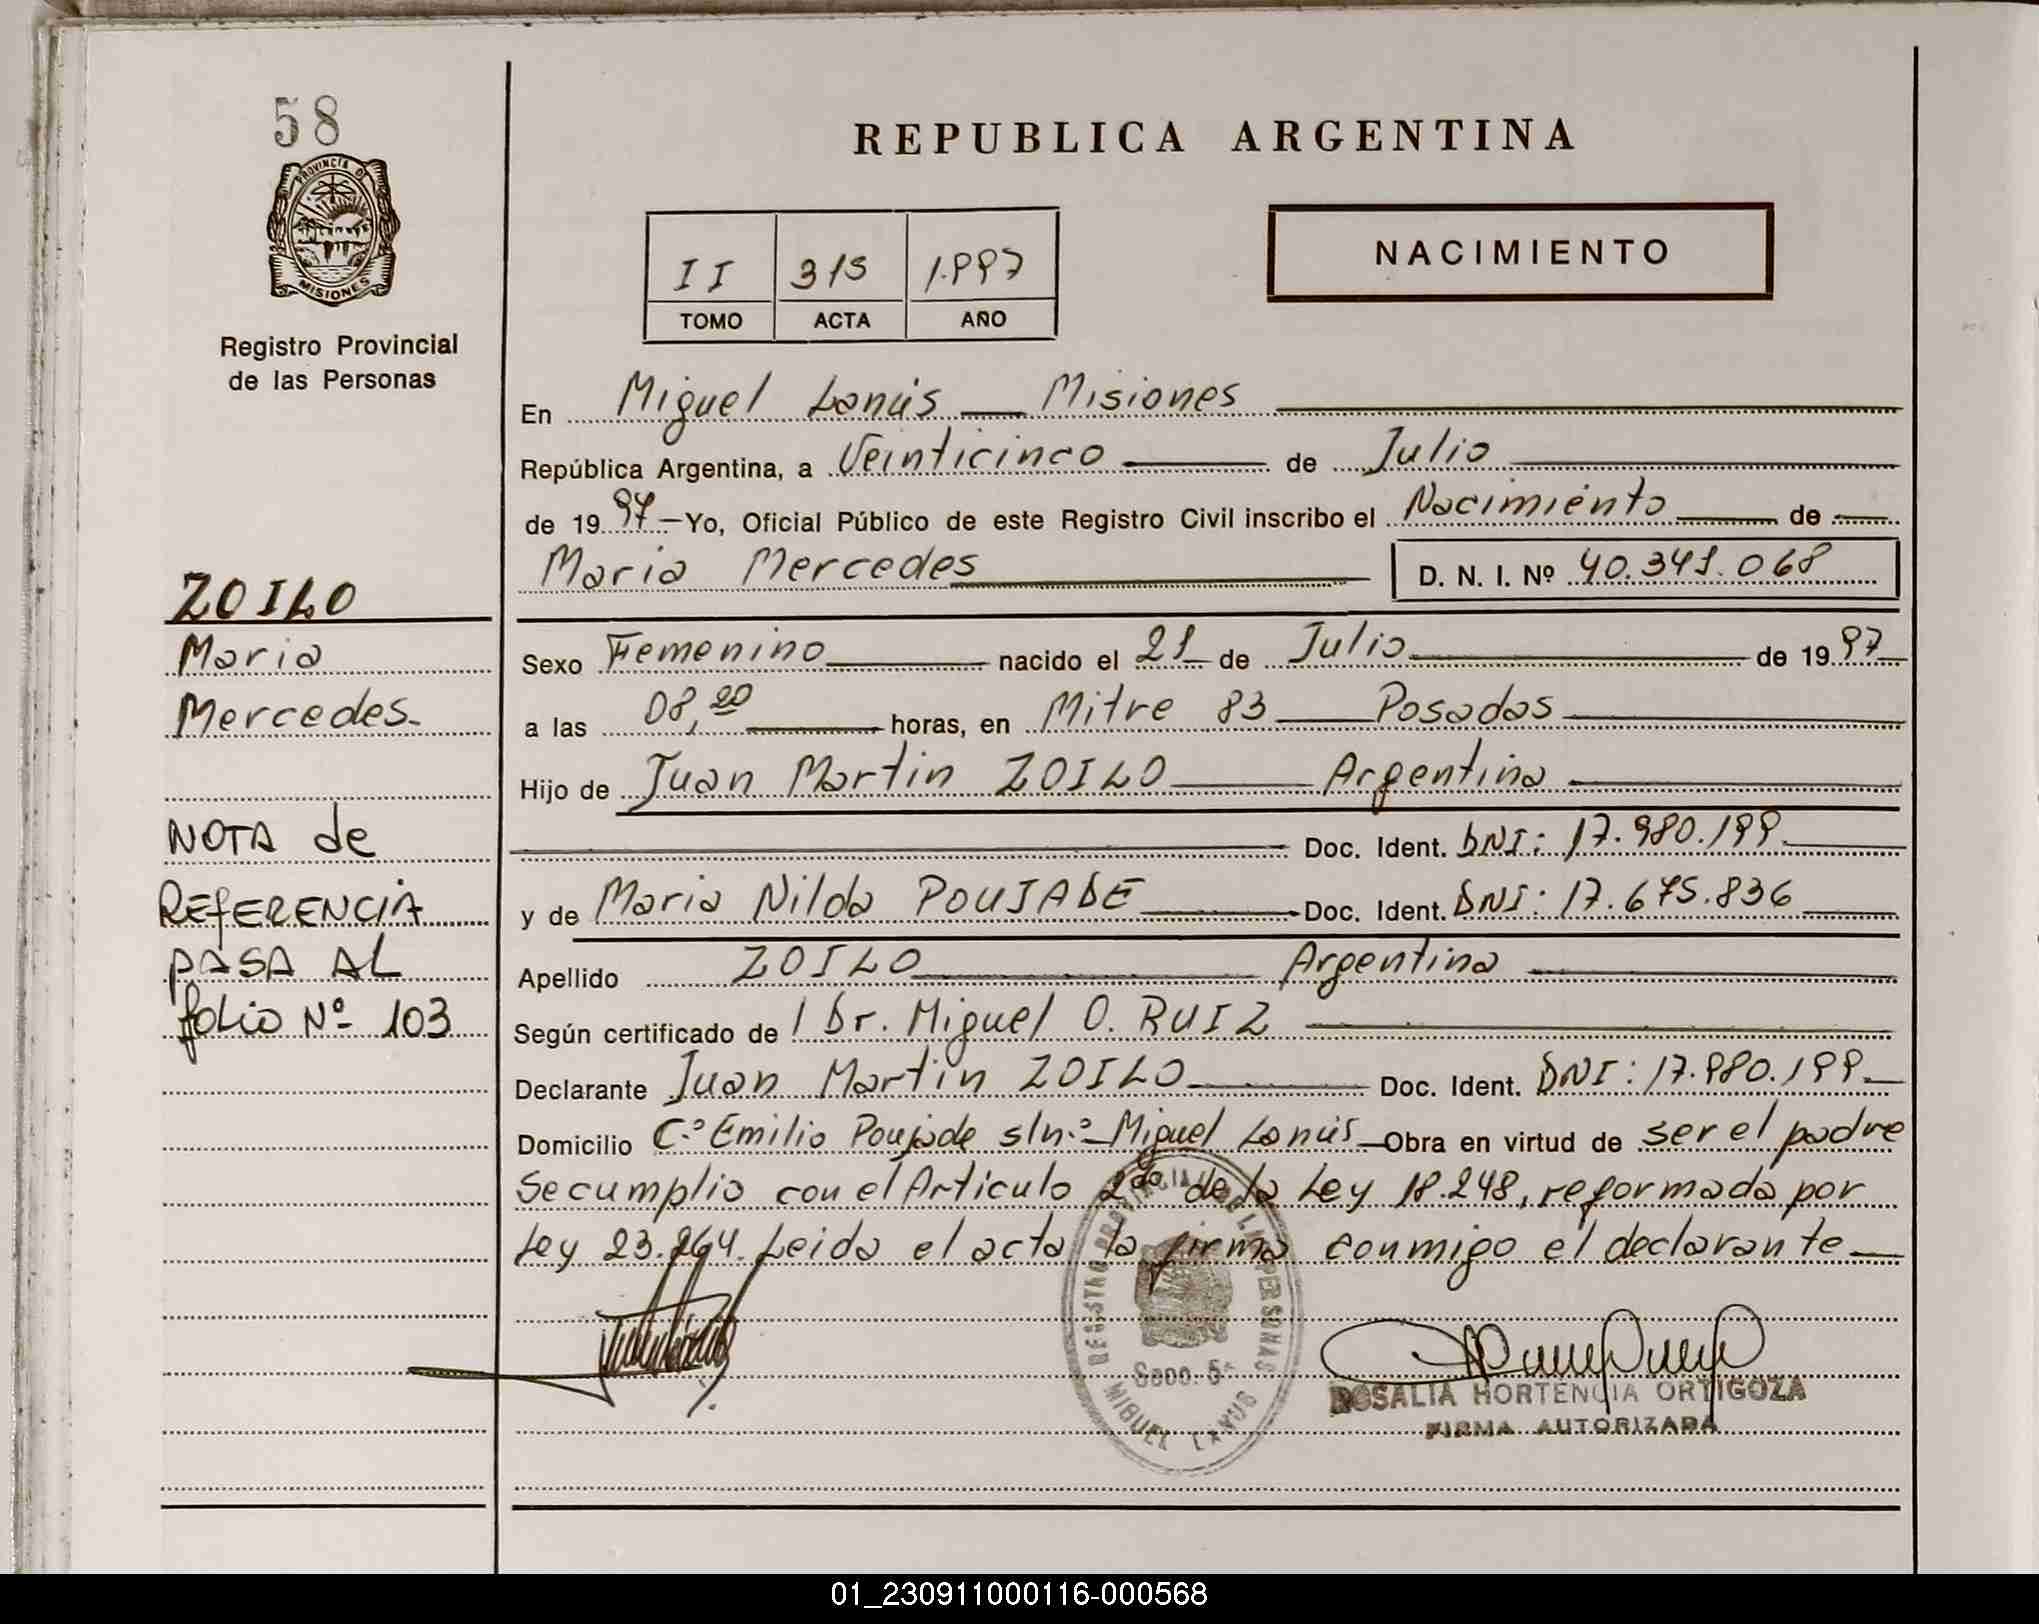 58
PROVINCIA D
MISIONES
Registro Provincial
de las Personas
REPUBLICA ARGENTINA
NACIMIENTO
II 315 1.997
TOMO ACTA AÑO
En Miguel Lanús — Misiones
República Argentina, a Veinticinco de Julio
de 19 97 — Yo, Oficial Público de este Registro Civil inscribo el Nacimiento de
Maria Mercedes D. N. I. Nº 40.341.068
ZOILO
Maria
Mercedes.
Sexo Femenino nacido el 21 de Julio de 19 97
a las 08,20 horas, en Mitre 83 — Posadas
Hijo de Juan Martin ZOILO — Argentina
Doc. Ident. DNI: 17.980.199
y de Maria Nilda POUJADE — Doc. Ident. DNI: 17.675.836
Apellido ZOILO Argentina
Según certificado de / Dr. Miguel O. RUIZ
Declarante Juan Martin ZOILO Doc. Ident. DNI: 17.980.199
Domicilio C.º Emilio Poujade s/n.º - Miguel Lanús — Obra en virtud de ser el padre
Se cumplio con el Articulo 2do de la Ley 18.248, reformada por
Ley 23.264. Leida el acta la firma conmigo el declarante
NOTA de
REFERENCIA
PASA AL
folio Nº 103
REGISTRO PROVINCIAL DE LAS PERSONAS
Secc. 5ª
MIGUEL LANUS
ROSALIA HORTENCIA ORTIGOZA
FIRMA AUTORIZADA
01_230911000116-000568